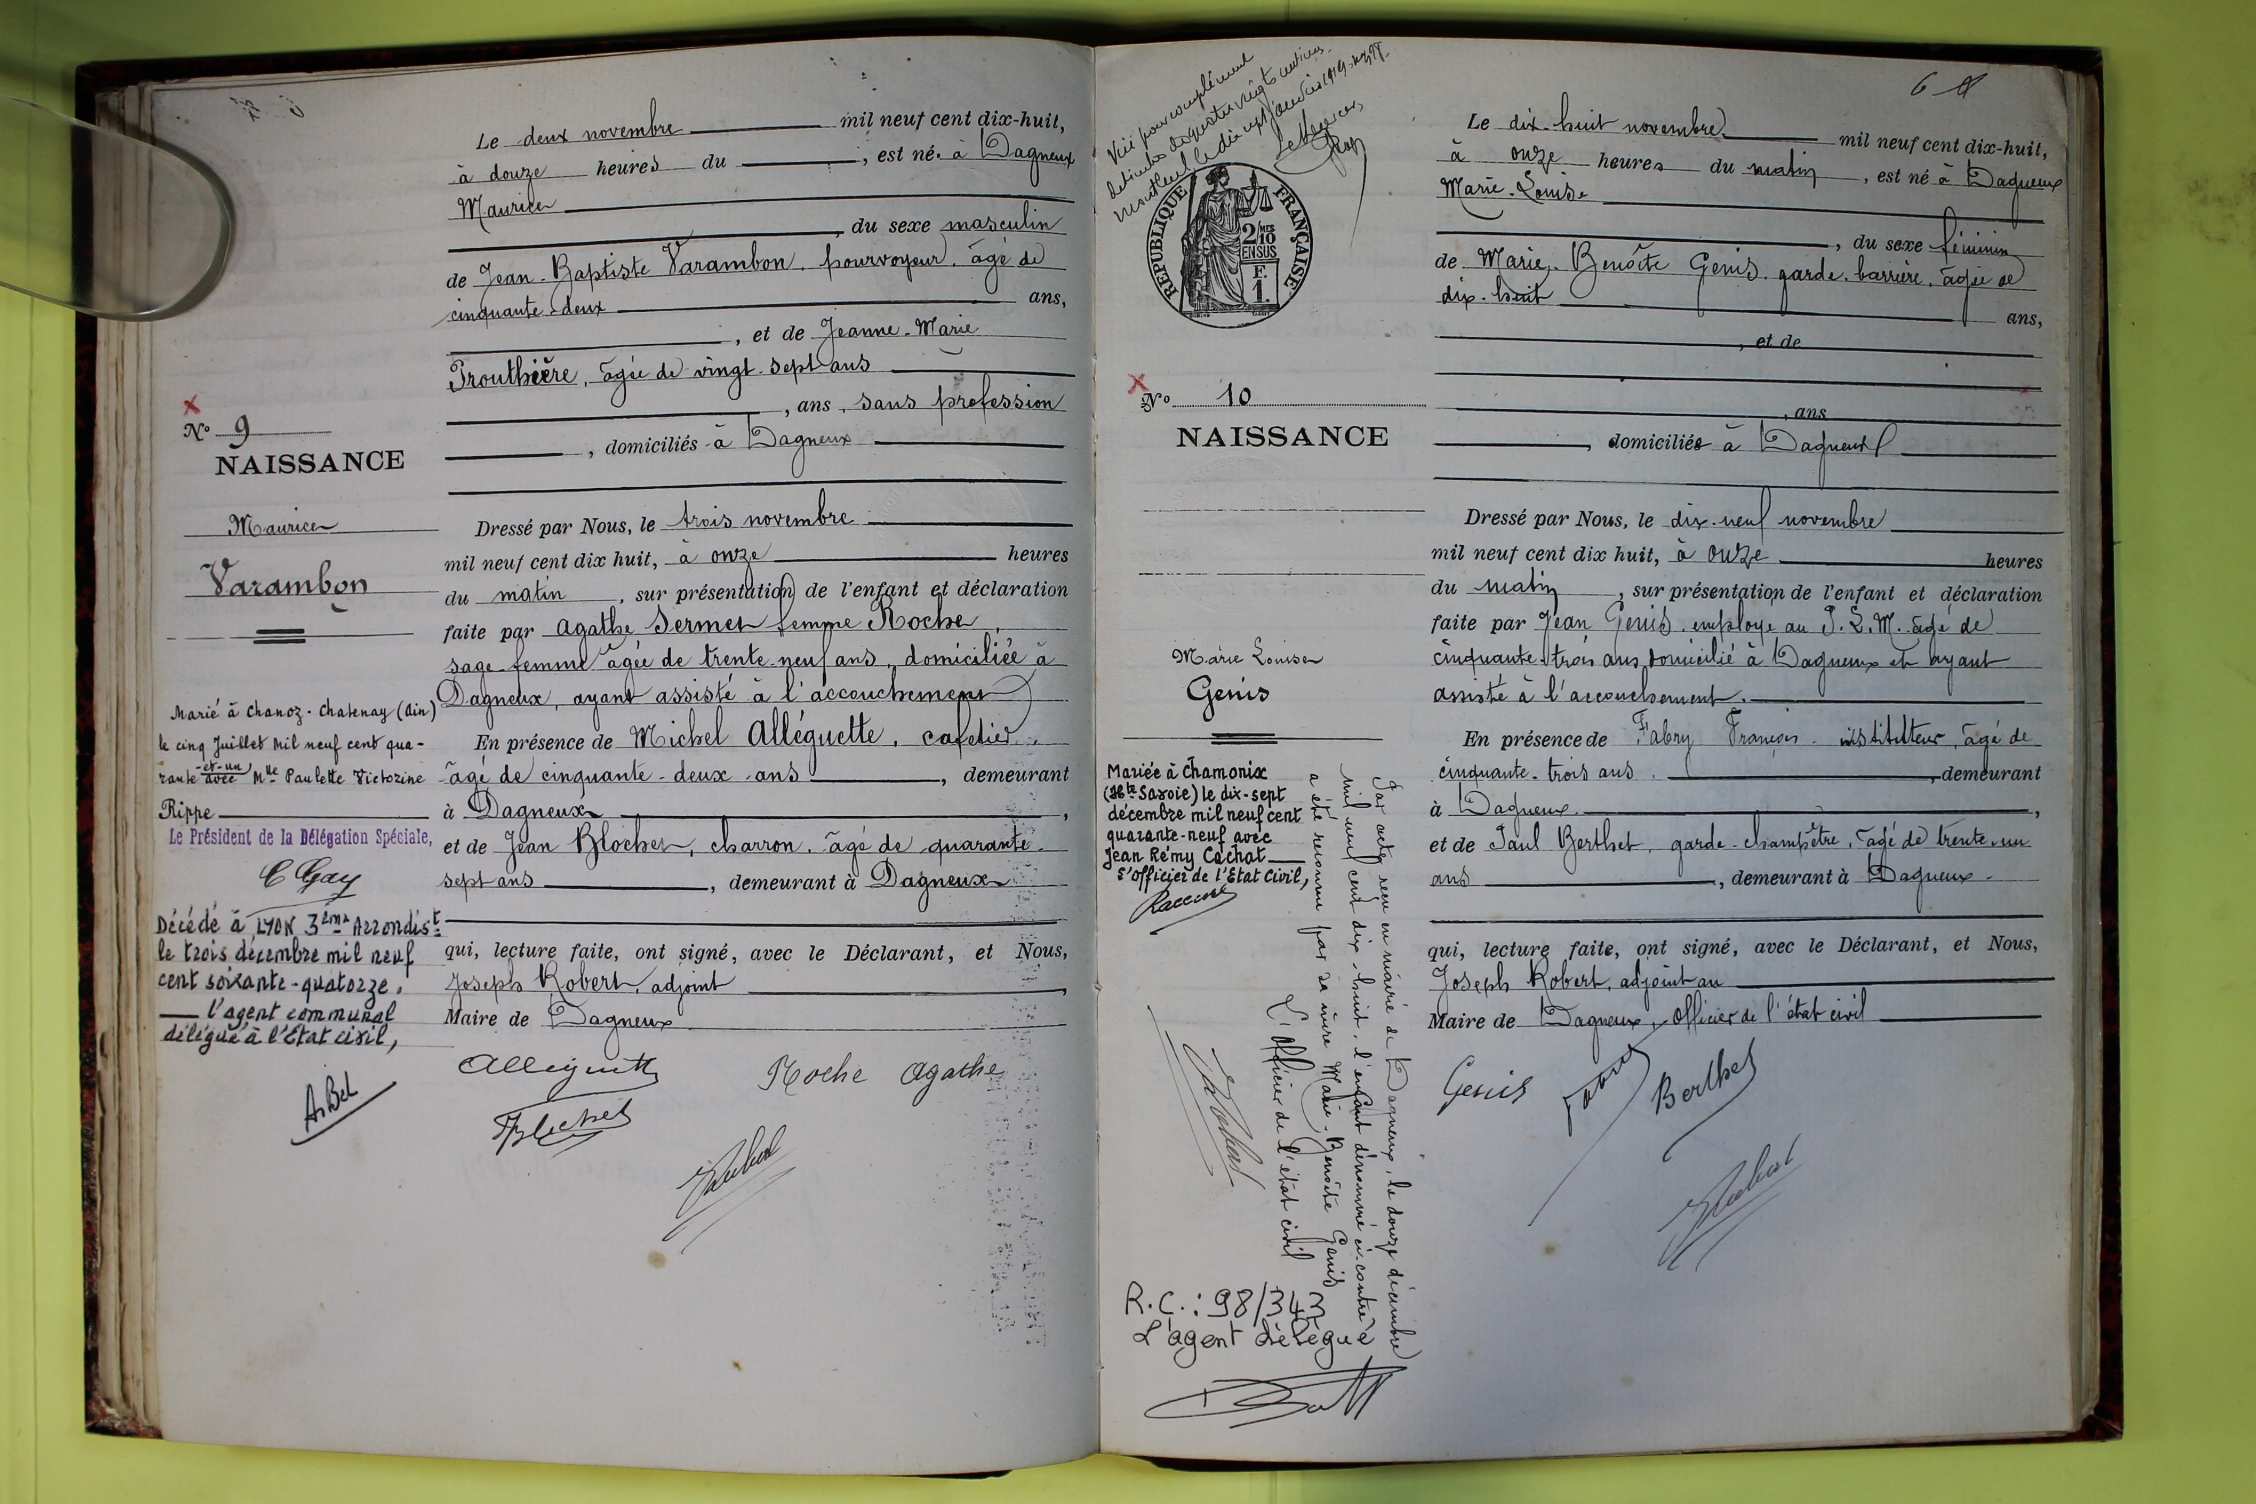 Le deux novembre mil neuf cent dix-huit,
à douze heures du , est né à Dagneux
Maurice
, du sexe masculin
de Jean-Baptiste Varambon, pourvoyeur, âgé de
cinquante-deux ans,
, et de Jeanne-Marie
Prouthière, âgée de vingt-sept ans
, ans, sans profession
, domiciliés à Dagneux
No 9
NAISSANCE
Maurice
Varambon
Dressé par Nous, le trois novembre
mil neuf cent dix huit, à onze heures
du matin , sur présentation de l'enfant et déclaration
faite par Agathe Sermet femme Roche,
sage-femme âgée de trente-neuf ans, domiciliée à
Dagneux, ayant assisté à l'accouchement
En présence de Michel Alléguette, cafetier,
âgé de cinquante-deux ans , demeurant
à Dagneux ,
et de Jean Blochet, charron, âgé de quarante-
sept ans , demeurant à Dagneux
qui, lecture faite, ont signé, avec le Déclarant, et Nous,
Joseph Robert, adjoint ,
Maire de Dagneux
Alleguette
Roche Agathe
Blochet
Robert
Marié à Chanoz-Chatenay (Ain)
le cinq Juillet mil neuf cent qua-
-et-un
rante avec Mlle Paulette Victorine
Rippe
Le Président de la Délégation Spéciale,
C Gay
Décédé à LYON 3ème Arrondist
le trois décembre mil neuf
cent soixante-quatorze.
l'agent communal
délégué à l'Etat civil,
A. Bel
6
Vu pour complément
de timbre de quatre vingts centimes
Montluel le dix sept janvier 1919
Le Receveur,
RÉPUBLIQUE FRANÇAISE
2/10 MES
EN SUS
F.
1.
Le dix-huit novembre mil neuf cent dix-huit,
à onze heures du matin , est né à Dagneux
Marie-Louise
, du sexe féminin
de Marie-Benoîte Genis, garde-barrière, âgée de
dix-huit ans,
, et de
, ans
, domiciliée à Dagneux
No 10
NAISSANCE
Marie Louise
Genis
Dressé par Nous, le dix-neuf novembre
mil neuf cent dix huit, à onze heures
du matin , sur présentation de l'enfant et déclaration
faite par Jean Genis, employé au P.L.M. âgé de
cinquante-trois ans, domicilié à Dagneux et ayant
assisté à l'accouchement.
En présence de Fabry François, instituteur, âgé de
cinquante-trois ans. , demeurant
à Dagneux ,
et de Paul Berthet, garde-champêtre, âgé de trente-un
ans , demeurant à Dagneux
qui, lecture faite, ont signé, avec le Déclarant, et Nous,
Joseph Robert, adjoint au
Maire de Dagneux, Officier de l'état civil
Genis Fabry Berthet
Robert
Mariée à Chamonix
(Hte Savoie) le dix-sept
décembre mil neuf cent
quarante-neuf avec
Jean Rémy Cachat
L'officier de l'Etat Civil,
Par acte reçu en mairie de Dagneux, le douze décembre
mil neuf cent dix-huit, l'enfant dénommé ci-contre
a été reconnu par sa mère Marie-Benoîte Genis
L'Officier de l'état civil
Robert
R.C.: 98/343
L'agent délégué